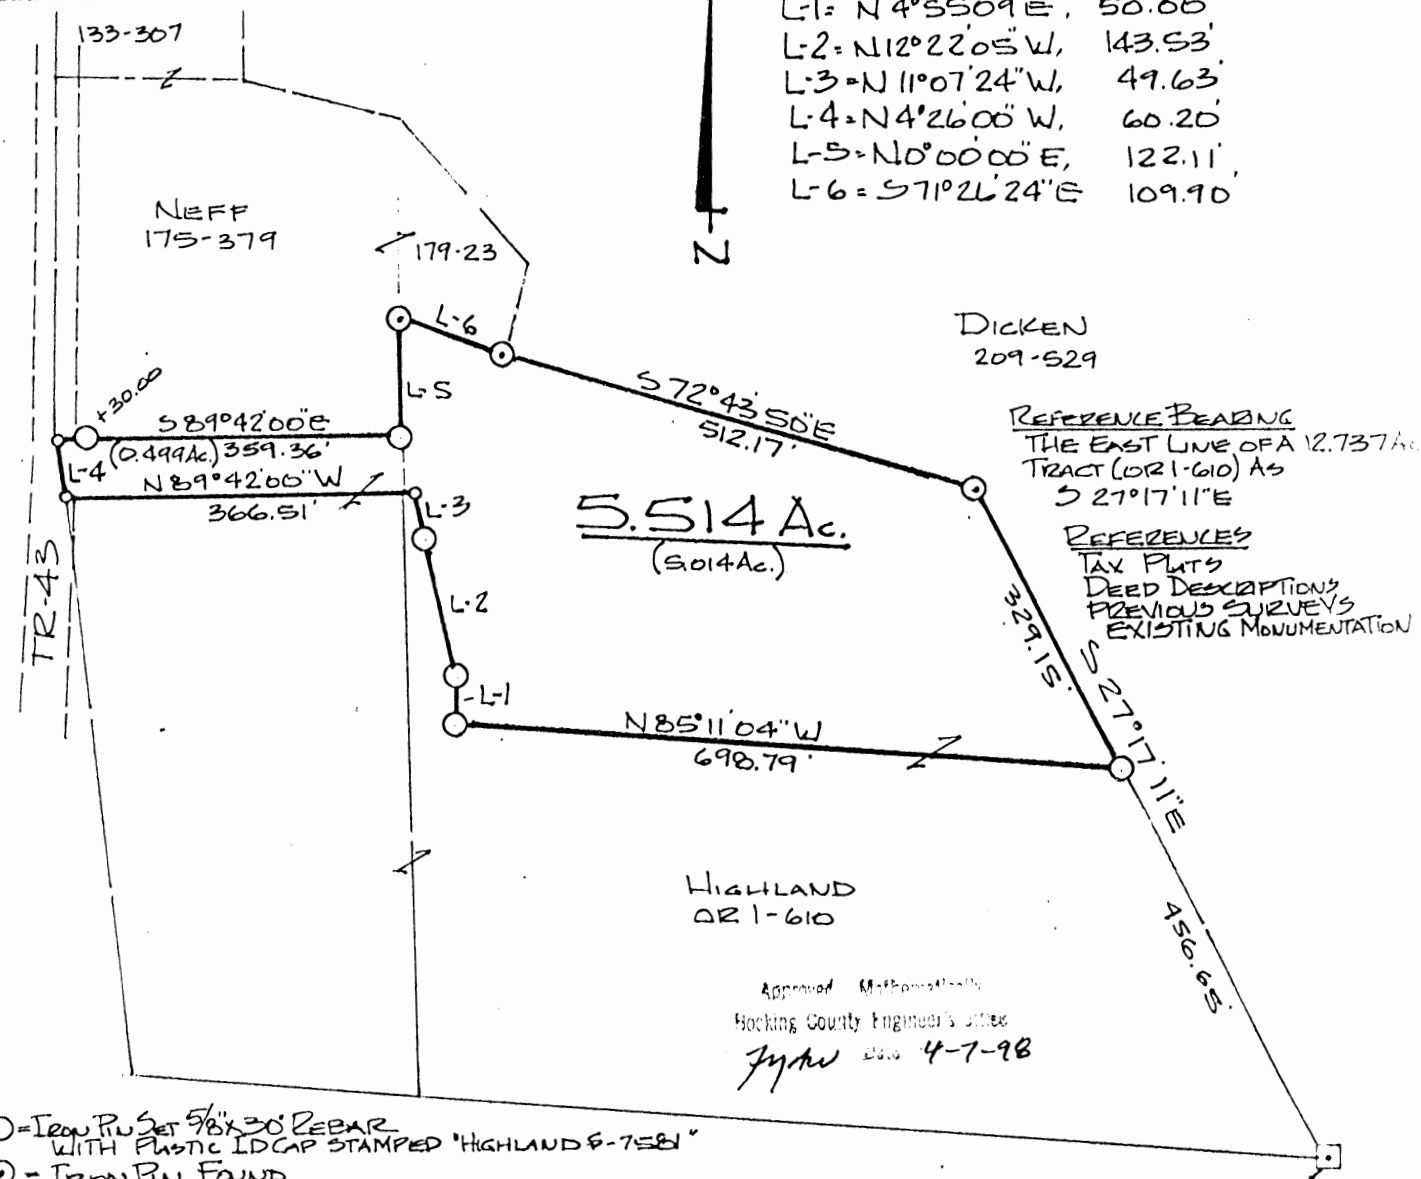 133-307
L-1= N 4°55'09"E, 50.00'
L-2= N12°22'05"W, 143.53'
L-3=N 11°07'24"W, 49.63'
L-4=N4°26'00"W, 60.20'
L-5=N0°00'00"E, 122.11'
L-6= S71°26'24"E 109.90'
N
NEFF
175-379
179-23
L-6
DICKEN
209-529
+30.00
L-5
S 72°43'50"E
512.17'
S 89°42'00"E
(0.499Ac.) 359.36'
L-4
N 89°42'00"W
366.51'
L-3
REFERENCE BEARING
THE EAST LINE OF A 12.737 Ac
TRACT (OR 1-610) AS
S 27°17'11"E
5.514 Ac.
(5.014Ac.)
REFERENCES
TAX PLATS
DEED DESCRIPTIONS
PREVIOUS SURVEYS
EXISTING MONUMENTATION
TR-43
L-2
329.15'
S 27°17'11"E
L-1
N 85°11'04"W
698.79'
HIGHLAND
OR 1-610
456.65'
Approved Mathematically
Hocking County Engineer's office
Date 4-7-98
=IRON PIN SET 5/8"X30" REBAR
WITH PLASTIC ID CAP STAMPED "HIGHLAND S-7581"
= IRON PIN FOUND